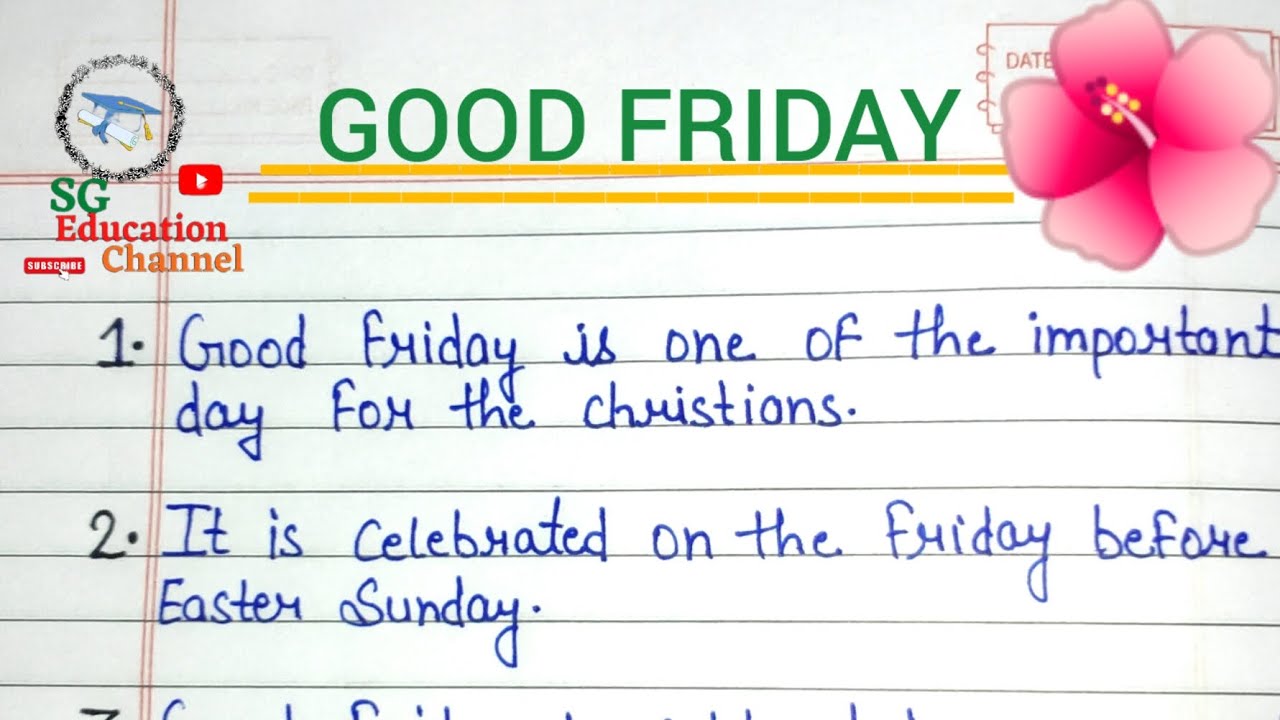 DATE
GOOD FRIDAY
SG
Education
Channel
SUBSCRIBE
1. Good Friday is one of the important
day for the christions.
2. It is celebrated on the Friday before
Easter Sunday.